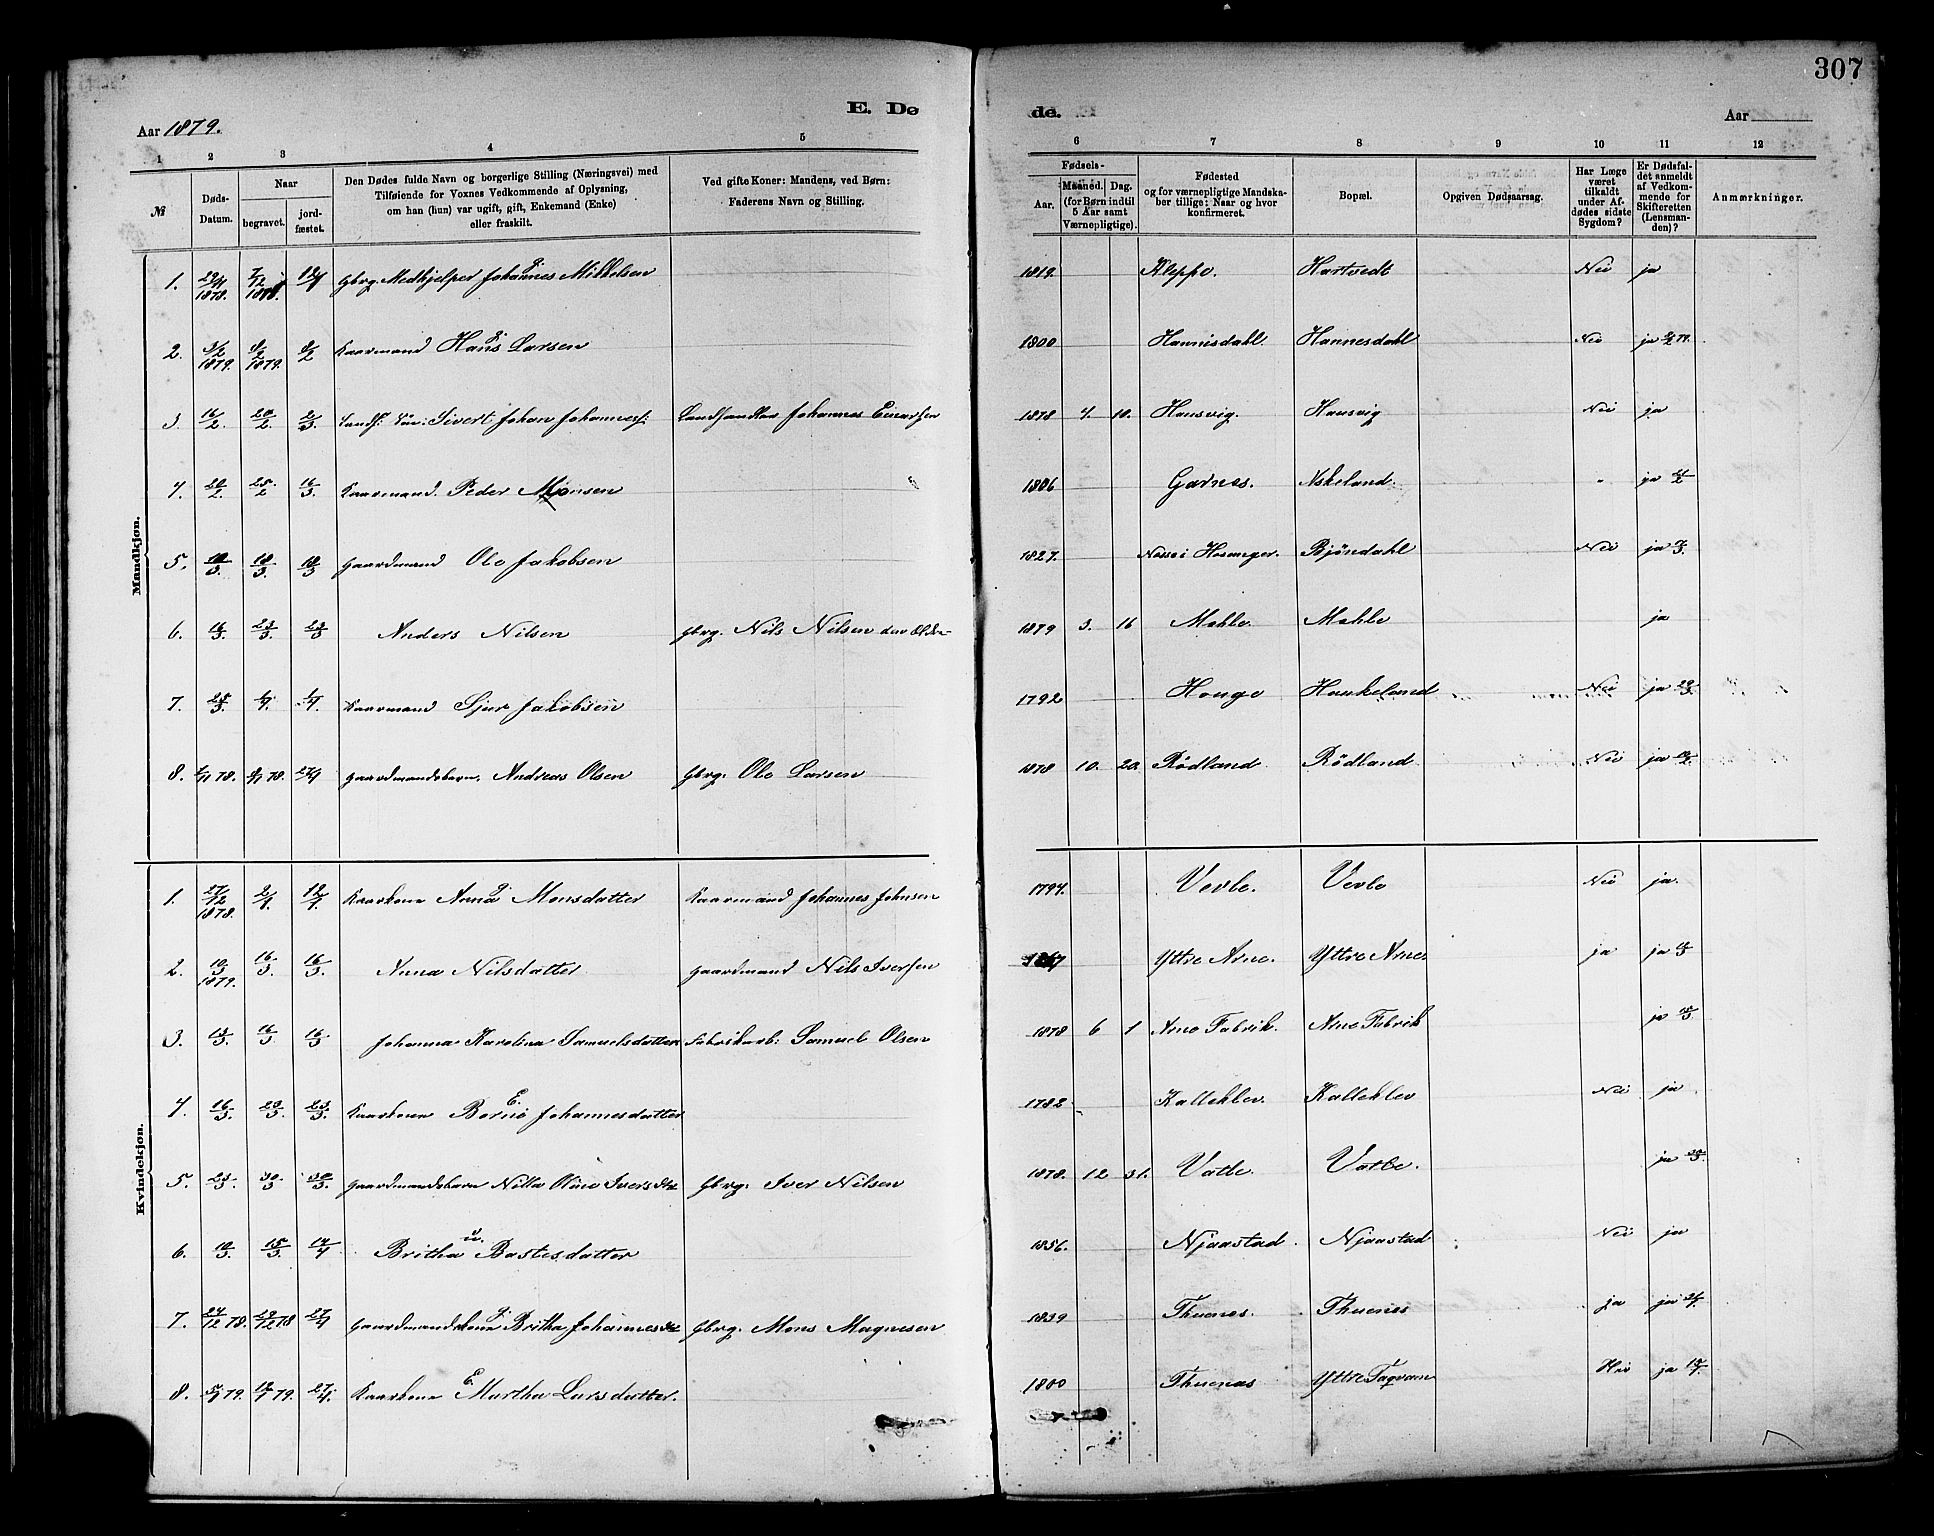 307
E. Dø de.
Aar 1879. Aar
1 2 3 4 5 6 7 8 9 10 11 12
№
Døds-Datum.
Naar begravet. jordfæstet.
Den Dødes fulde Navn og borgerlige Stilling (Næringsvei) med Tilføiende for Voxnes Vedkommende af Oplysning, om han (hun) var ugift, gift, Enkemand (Enke) eller fraskilt.
Ved gifte Koner: Mandens, ved Børn: Faderens Navn og Stilling.
Fødsels- Aar. Maaned. Dag. (for Børn indtil 5 Aar samt Værnepligtige).
Fødested og for værnepligtige Mandskaber tillige: Naar og hvor konfirmeret.
Bopæl.
Opgiven Dødsaarsag.
Har Læge været tilkaldt under Afdødes sidste Sygdom?
Er Dødsfaldet anmeldt af Vedkommende for Skifteretten (Lensmanden)?
Anmærkninger.
Mandkjøn.
1. 29/11 1878. 7/12 1878. Gbrg. Medhjelper Johannes Mikkelsen g. 1819. Kleppe. Hartvedt Nei ja
2. 3/2 1879. 8/2 1879. 8/2 Kaarmand Hans Larsen g. 1800 Hannisdahl. Hannesdahl Nei ja 79.
3. 16/2. 20/2 2/3. Sivert Johan Johanness: Johannes Einarsen 1878 4. 10. Hausvig. Hausvig Nei ja
4. 20/2. 25/2 16/3. Kaarmand. Peder Monsen 1806 Garnes. Askeland. " ja
5. 10/3. 18/3. 18/3 Gaardmand Ole Jakobsen 1827. Hosanger. Bjöndahl Nei ja
6. 16/3. 23/3. 23/3 Anders Nilsen Gbrg. Nils Nilsen den Eldre 1879 3. 16 Mehle Mehle ja
7. 25/3. 1/4. 1/4 Kaarmand Sjur Jakobsen 1792 Houge Haukeland Nei ja 29/3.
8. 78. 78. 27/4 Gaardmandsbarn. Andreas Olsen Gbrg. Ole Larsen 1878 10. 20. Rödland Rödland Nei ja
Kvindekjøn.
1. 27/12 1878. 2/1 12/1. Kaarkone Anna Monsdatter g. Kaarmand Johannes Johnsen 1794. Vevle. Vevle Nei ja.
2. 10/3 1879. 16/3. 16/3. Anna Nilsdatter Gaardmand Nils Iversen Yttre Arne. Yttre Arne ja ja
3. 13/3. 16/3 16/3 Johanna Karolina Samuelsdatter Fabrikarb: Samuel Olsen 1878 6 1 Arne Fabrik. Arne Fabrik ja
4. 16/3. 23/3. 23/3. Kaarkone Johannesdatter E. 1782 Kalleklev. Kalleklev Nei ja
5. 23/3. 30/3 30/3. Gaardmandsbarn Oline Iversdtr Gbrg. Iver Nilsen 1878. 12 31. Vatle. Vatle. ja 30/3.
6. 10/3. 15/3. 14/4 Britha Bastesdatter u. 1856. Njaastad. Njaastad Nei ja
7. 24/12 78. 29/12 78 27/4 Gaardmandskone Britha Johannesdtr g. Gbrg. Mons Magnesen 1839 Thuenes. Thuenes ja ja
8. 5/1 79. 12/1 79. 27/4. Kaarkone Martha Larsdatter. E. 1800 Thuenes Yttre Taqvam Nei ja